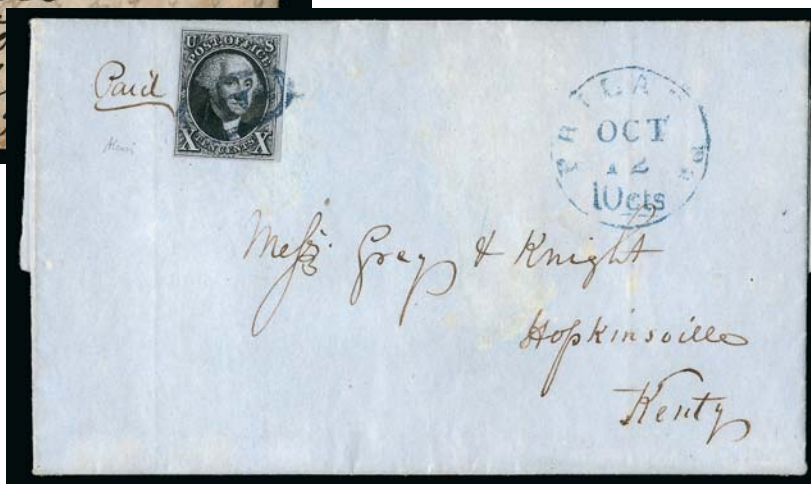 Paid
U S
POST OFFICE
X TEN CENTS X
OCT
12
10cts
Mess. Grey & Knight
Hopkinsville
Kenty